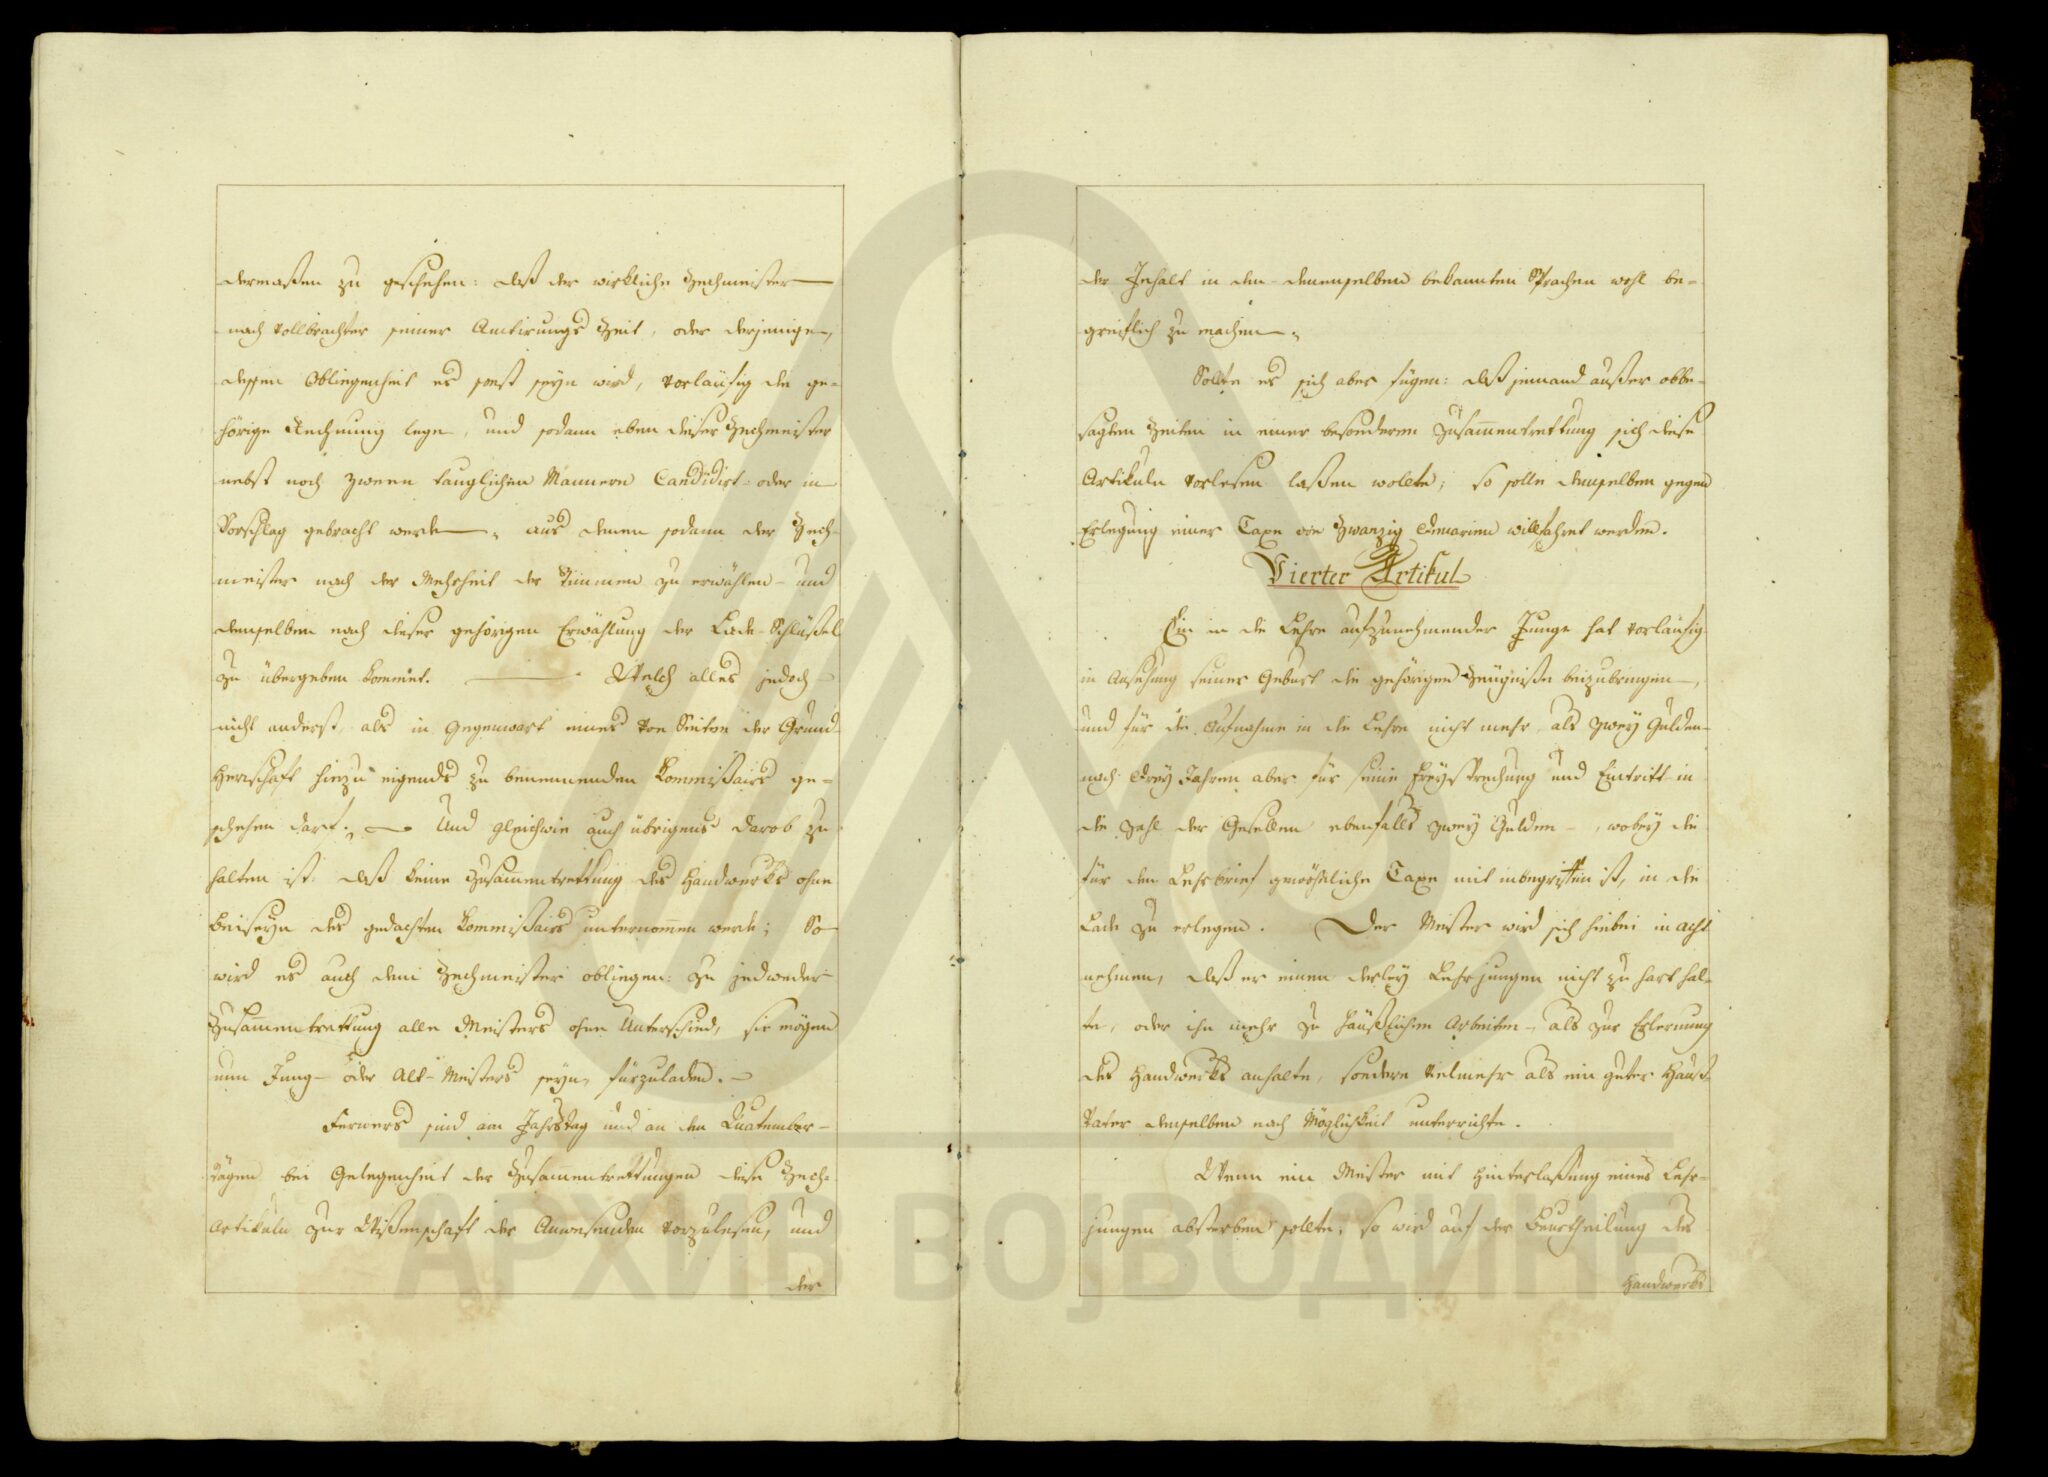 dermaßen zu geschehen: daß der wirkliche Zechmeister
nach vollbrachter seiner Amtirungs Zeit, oder derjenige,
dessen Obliegenheit es sonst seyn wird, vorläufig die ge-
hörige Rechnung lege, und sodann eben dieser Zechmeister
nebst noch zween tauglichen Männern Candidirt- oder in
Vorschlag gebracht werde, aus denen sodann der Zech-
meister nach der Mehrheit der Stimmen zu erwählen- und
demselben nach dieser gehörigen Erwählung der Lade-Schlüßel
zu übergeben kommet. Welch alles jedoch
nicht anderst, als in Gegenwart eines von Seiten der Grund-
herrschaft hiezu eigends zu benennenden Kommißairs ge-
schehen darf. Und gleichwie auch übrigens darob zu
halten ist: daß keine Zusam̅entrettung des Handwerks ohne
Beiseyn des gedachten Kommißairs unternom̅en werde; So
wird es auch dem Zechmeister obliegen: zu jedweder
Zusam̅entrettung alle Meisters ohne Unterschied, sie mögen
nun Jung- oder Alt-Meisters seyn, fürzuladen.
Ferners sind am Jahrstag und an den Quatember-
tägen bei Gelegenheit der Zusam̅entrettungen diese Zech-
Artikuln zur Wißenschaft der Anwesenden vorzulesen, und
der
der Inhalt in den denenselben bekannten Sprachen wohl be-
greiflich zu machen.
Sollte es sich aber fügen: daß jemand außer obbe-
sagten Zeiten in einer besonderen Zusam̅entrettung sich diese
Artikuln vorlesen laßen wollte; so solle demselben gegen
Erlegung einer Taxe von Zwanzig Denarien willfahret werden.
Vierter Artikul
Ein in die Lehre aufzunehmender Junge hat vorläufig
in Ansehung seiner Geburt die gehörigen Zeügniße beizubringen,
und für die Aufnahme in die Lehre nicht mehr, als zwey Gulden-
nach drey Jahren aber für seine Freysprechung und Eintritt in
die Zahl der Gesellen ebenfalls zwey Gulden, wobey die
für den Lehrbrief gewöhnliche Taxe mit inbegriffen ist, in die
Lade zu erlegen. Der Meister wird sich hiebei in acht
nehmen, daß er einen derley Lehrjungen nicht zu hart hal-
te, oder ihn mehr zu häußlichen Arbeiten, als zur Erlernung
des Handwerks anhalte, sondern vielmehr als ein guter Hauß-
Vater denselben nach Möglichkeit unterrichte.
Wenn ein Meister mit Hinterlaßung eines Lehr-
jungen absterben sollte; so wird auf der Beurtheilung des
Handwerks
АРХИВ ВОЈВОДИНЕ